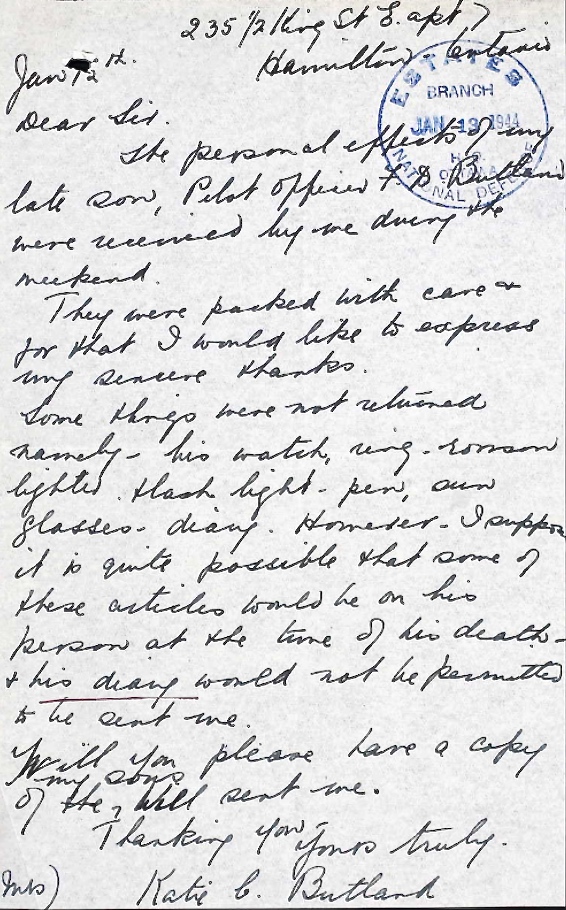 235 1/2 King St E. apt 7
Hamilton - Ontario
Jan 12th.
ESTATES
BRANCH
JAN 13 1944
H.Q.
OTTAWA
NATIONAL DEFENCE
Dear Sir.
The personal effects of my
late son, Pilot Officer F D Butland
were received by me during the
weekend.
They were packed with care &
for that I would like to express
my sincere thanks.
Some things were not returned
namely - his watch, ring - ronson
lighter. flash light - pen, sun
glasses - diary. However - I suppose
it is quite possible that some of
these articles would be on his
person at the time of his death -
& his diary would not be permitted
to be sent me.
Will you please have a copy
my sons
of the, Will sent me.
Thanking you
Yours truly.
Mrs) Katie C. Butland